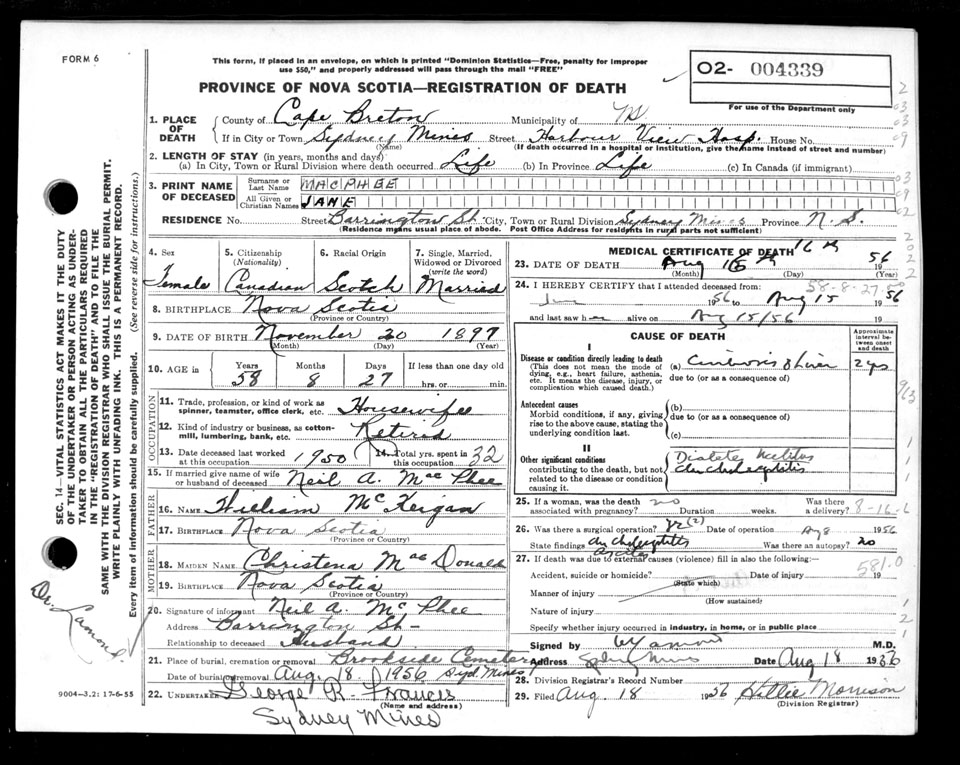 FORM 6
This form, if placed in an envelope, on which is printed "Dominion Statistics—Free, penalty for improper
use $50," and properly addressed will pass through the mail "FREE"
PROVINCE OF NOVA SCOTIA—REGISTRATION OF DEATH
O2- 004339
For use of the Department only
1. PLACE OF DEATH
County of Cape Breton Municipality of
If in City or Town Sydney Mines Street Harbour View Hosp. House No.
(Name) (If death occurred in a hospital or institution, give the name instead of street and number)
2. LENGTH OF STAY (in years, months and days)
(a) In City, Town or Rural Division where death occurred Life (b) In Province Life (c) In Canada (if immigrant)
3. PRINT NAME OF DECEASED
Surname or Last Name MACPHEE
All Given or Christian Names JANE
RESIDENCE No. Street Barrington St. City, Town or Rural Division Sydney Mines Province N.S.
(Residence means usual place of abode. Post Office Address for residents in rural parts not sufficient)
4. Sex 5. Citizenship (Nationality) 6. Racial Origin 7. Single, Married, Widowed or Divorced (write the word)
Female Canadian Scotch Married
8. BIRTHPLACE Nova Scotia
(Province or Country)
9. DATE OF BIRTH November 20 1897
(Month) (Day) (Year)
10. AGE in Years Months Days If less than one day old
58 8 27 hrs. or min.
OCCUPATION
11. Trade, profession, or kind of work as spinner, teamster, office clerk, etc. Housewife
12. Kind of industry or business, as cotton-mill, lumbering, bank, etc. Retired
13. Date deceased last worked at this occupation 1950 14. Total yrs. spent in this occupation 32
15. If married give name of wife or husband of deceased Neil A. MacPhee
FATHER
16. NAME William McKeigan
17. BIRTHPLACE Nova Scotia
(Province or Country)
MOTHER
18. MAIDEN NAME Christena MacDonald
19. BIRTHPLACE Nova Scotia
(Province or Country)
20. Signature of informant Neil A. McPhee
Address Barrington St-
Relationship to deceased Husband
21. Place of burial, cremation or removal Brookside Cemetery
Date of burial or removal Aug. 18. 1956 Syd. Mines
22. UNDERTAKER George R. Francis
(Name and address)
Sydney Mines
9004-3.2: 17-6-55
MEDICAL CERTIFICATE OF DEATH
23. DATE OF DEATH Aug 16th 1956
(Month) (Day) (Year)
24. I HEREBY CERTIFY that I attended deceased from: 58-8-27
1956 to Aug 15 1956
and last saw her alive on Aug 15/56
CAUSE OF DEATH
Approximate interval between onset and death
I
Disease or condition directly leading to death
(This does not mean the mode of dying, e.g., heart failure, asthenia, etc. It means the disease, injury, or complication which caused death.)
(a) Cirrhosis of Liver 2 yrs
due to (or as a consequence of)
Antecedent causes
Morbid conditions, if any, giving rise to the above cause, stating the underlying condition last.
(b)
due to (or as a consequence of)
(c)
II
Other significant conditions
contributing to the death, but not related to the disease or condition causing it.
Diabetes Mellitus
25. If a woman, was the death associated with pregnancy? no Duration weeks. Was there a delivery?
8-16-6
26. Was there a surgical operation? Date of operation Aug 1956
State findings Was there an autopsy? no
27. If death was due to external causes (violence) fill in also the following:
581.0
Accident, suicide or homicide? (State which) Date of injury 19
Manner of injury
(How sustained)
Nature of injury
Specify whether injury occurred in industry, in home, or in public place
Signed by M.D.
Address Sydney Mines Date Aug 18 1956
28. Division Registrar's Record Number
29. Filed Aug. 18 1956 Hillie Morrison
(Division Registrar)
SEC. 14—VITAL STATISTICS ACT MAKES IT THE DUTY
OF THE UNDERTAKER OR PERSON ACTING AS UNDER-
TAKER TO OBTAIN ALL THE PARTICULARS REQUIRED
IN THE "REGISTRATION OF DEATH" AND TO FILE THE
SAME WITH THE DIVISION REGISTRAR WHO SHALL ISSUE THE BURIAL PERMIT.
WRITE PLAINLY WITH UNFADING INK. THIS IS A PERMANENT RECORD.
Every item of information should be carefully supplied. (See reverse side for instructions.)
Dr. Lamond